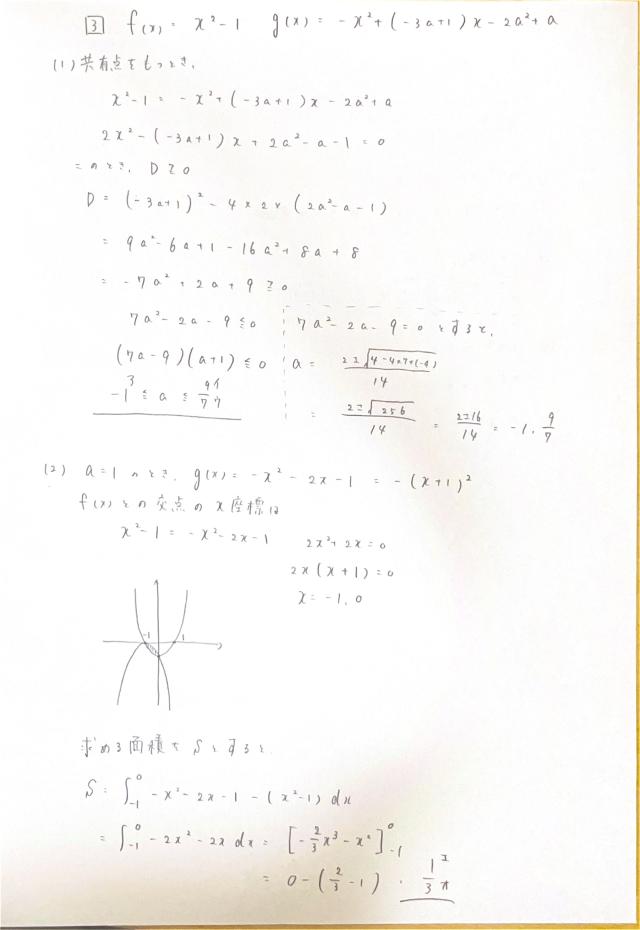 3 f(x) = x² - 1 g(x) = -x² + (-3a+1)x - 2a² + a
(1) 共有点をもつとき、
x² - 1 = -x² + (-3a+1)x - 2a² + a
2x² - (-3a+1)x + 2a² - a - 1 = 0
このとき、D ≧ 0
D = (-3a+1)² - 4×2×(2a² - a - 1)
= 9a² - 6a + 1 - 16a² + 8a + 8
= -7a² + 2a + 9 ≧ 0
7a² - 2a - 9 ≦ 0
(7a - 9)(a + 1) ≦ 0
-1 ≦ a ≦ 9/7
7a² - 2a - 9 = 0 とすると、
a = (2±√(4-4×7×(-9)))/14
= (2±√256)/14 = (2±16)/14 = -1, 9/7
(2) a = 1 のとき、g(x) = -x² - 2x - 1 = -(x+1)²
f(x) との交点の x座標は
x² - 1 = -x² - 2x - 1
2x² + 2x = 0
2x(x+1) = 0
x = -1, 0
-1 1
求める面積を S とすると、
S = ∫₋₁⁰ -x² - 2x - 1 - (x² - 1) dx
= ∫₋₁⁰ -2x² - 2x dx = [-2/3 x³ - x²]₋₁⁰
= 0 - (2/3 - 1) = 1/3